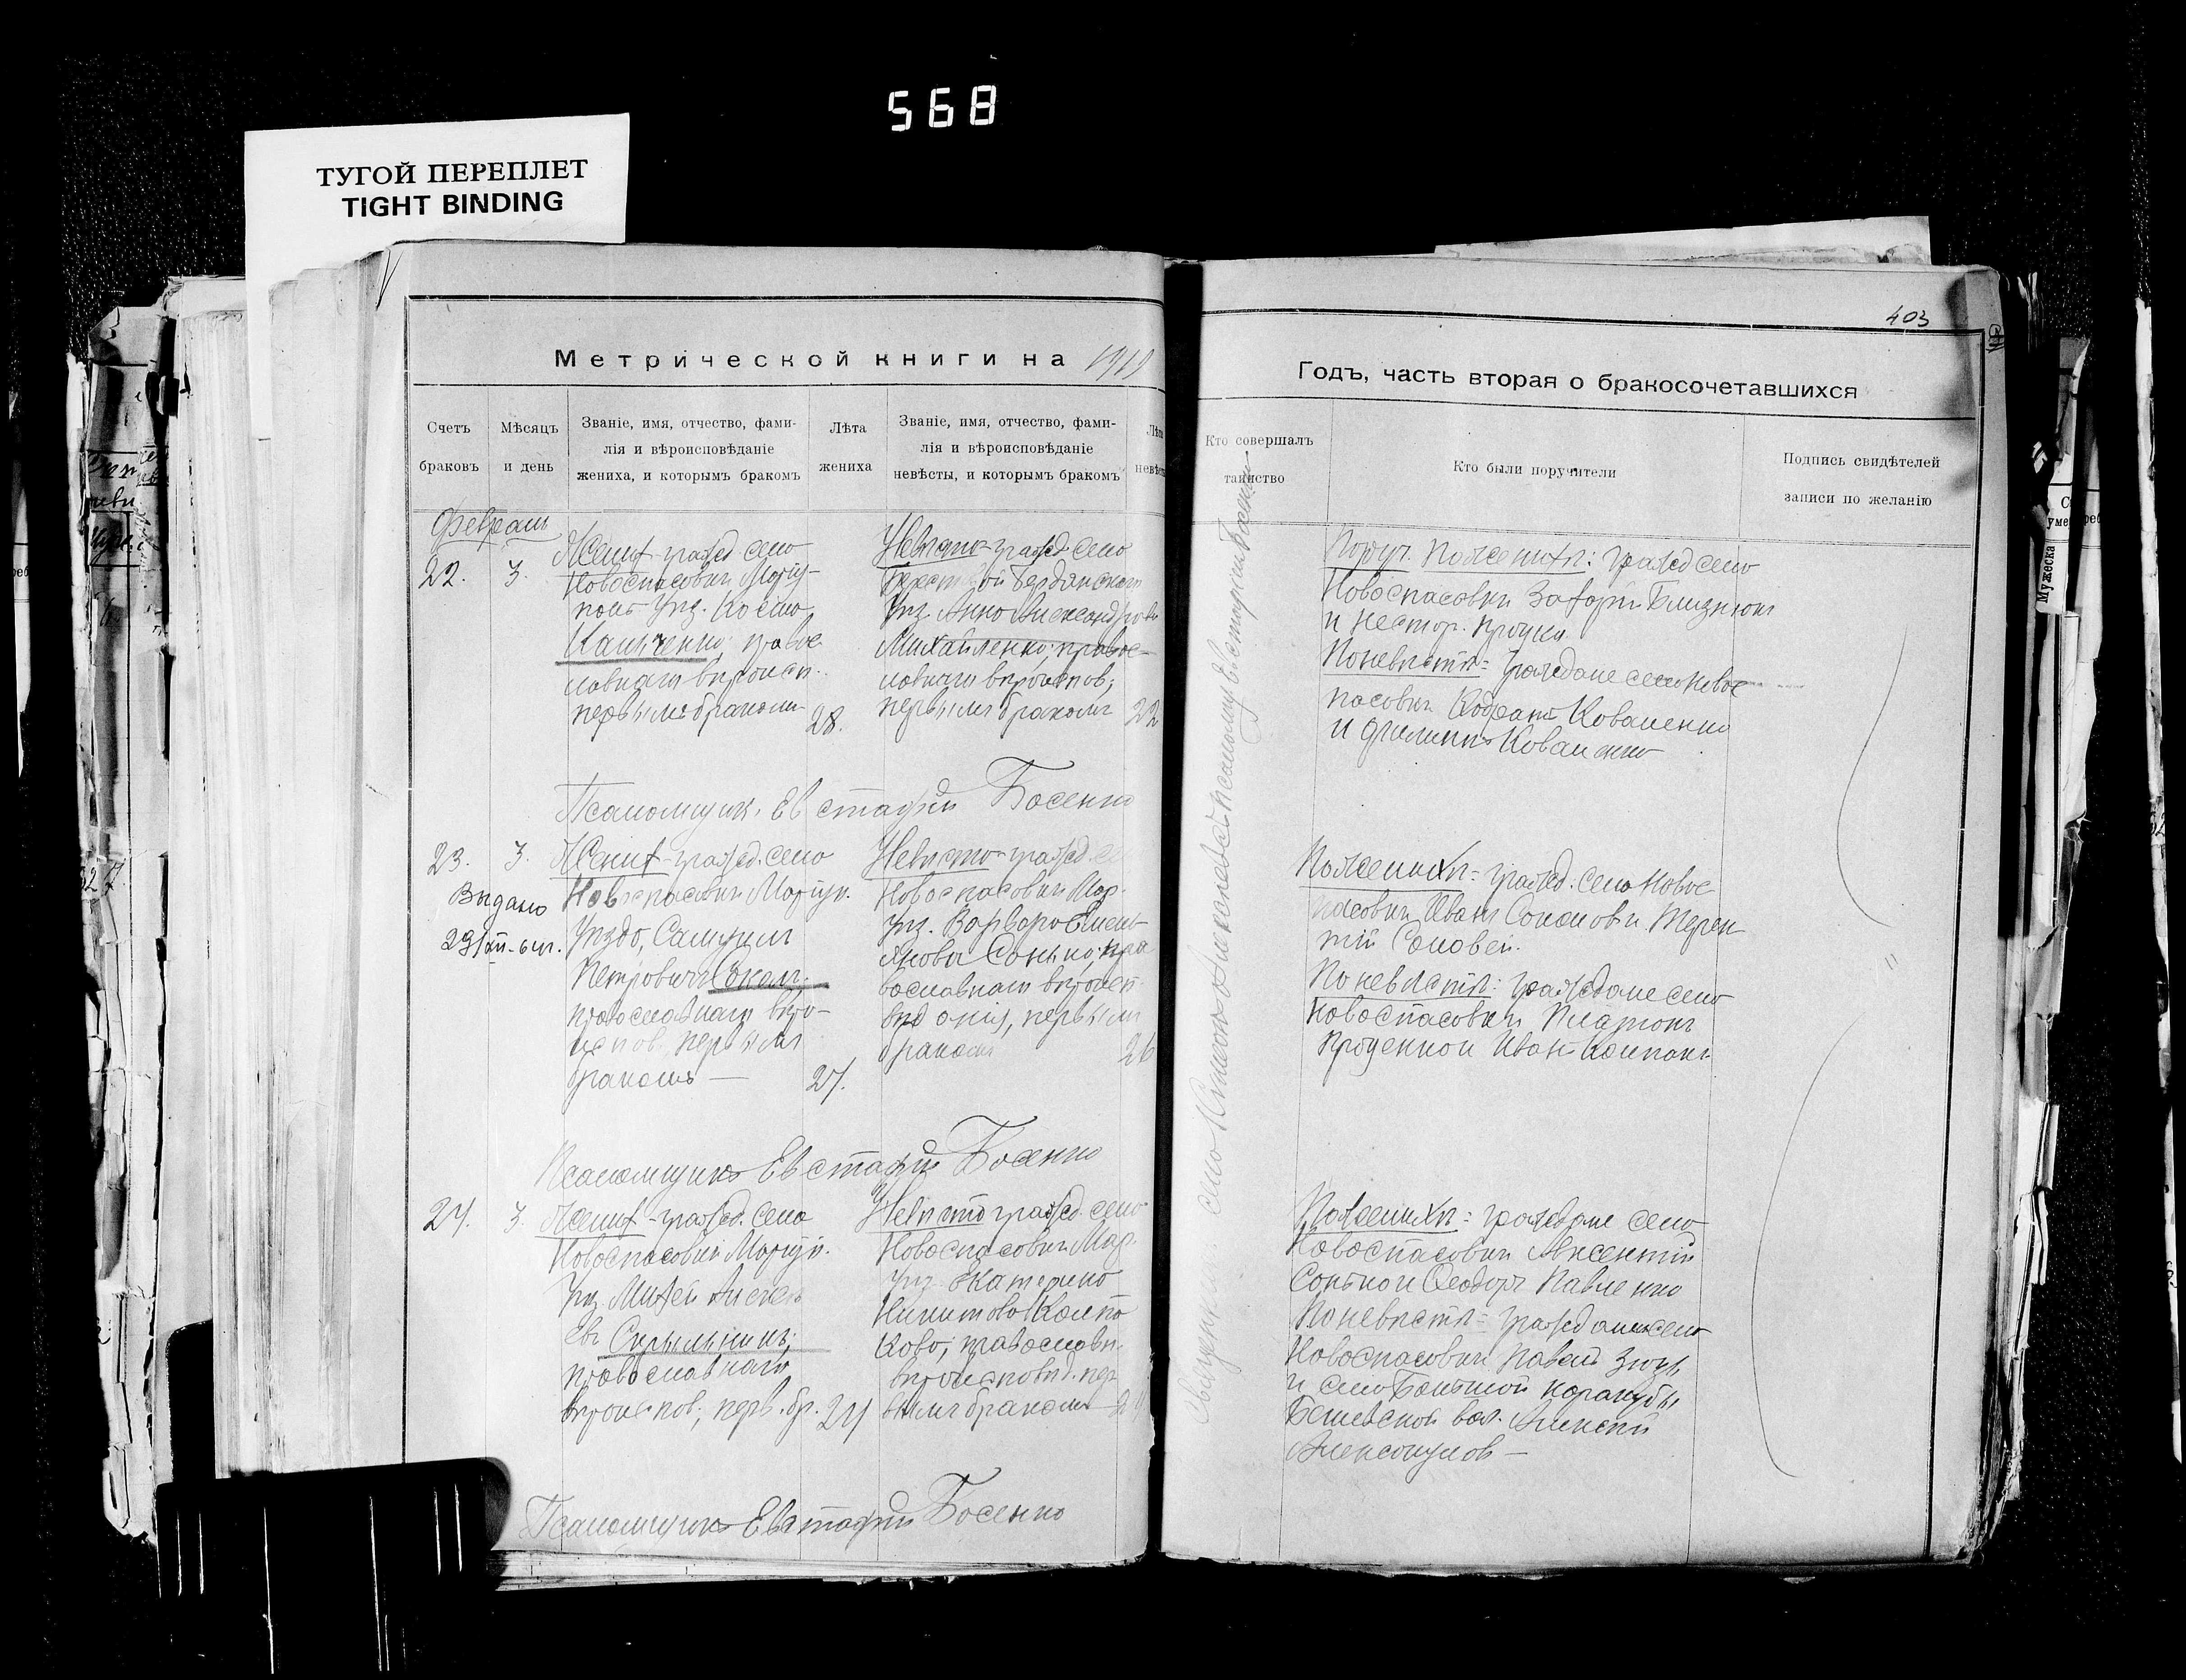 568
ТУГОЙ ПЕРЕПЛЕТ
TIGHT BINDING
403
Метрической книги на 1919
Годъ, часть вторая о бракосочетавшихся
Счетъ браковъ
Мѣсяцъ и день
Званіе, имя, отчество, фами-
лія и вѣроисповѣданіе
жениха, и которымъ бракомъ
Лѣта
жениха
Званіе, имя, отчество, фами-
лія и вѣроисповѣданіе
невѣсты, и которымъ бракомъ
Лѣта
невѣ
Кто совершалъ
таинство
Кто были поручители
Подпись свидѣтелей
записи по желанію
Февраль
22.
3.
Жених - гражд. село
Новоспасовки Маріу-
поль Уѣз.
православ
новнаго вѣроисп.
первымъ бракомъ
28.
Невѣста - гражд. село
Бердянскаго
Уѣз. Анна Александрова
Михайленко; правос-
лавнаго вѣроиспов;
первымъ бракомъ
22
Поруч. По женихѣ: гражд село
Новоспасовки Захарій Близнюкъ
и Нестор.
По невѣстѣ: Граждане село Новос
пасовки Кодратъ Коваленко
и Филиппъ Коваленко
Псаломщик. Евстафій Босенко
23.
3.
Выдано
Жених - гражд. село
Новоспасовки Маріуп.
Уѣзда, Самуил
Петровичъ Сокол
православнаго вѣро-
испов. первымъ
бракомъ —
27.
Невѣста - гражд. се
Новоспасовки Мар.
Уѣз. Варвара Емель-
янова Сонько, пра
вославнаго вѣроисп
вѣданія, первымъ
бракомъ
26
По женихѣ: гражд. село Новос
пасовки Иванъ Соколов и Терен
тій Соловей.
По невѣстѣ: граждане село
Новоспасовки Платонъ
Проценко и Иванъ Колпакъ
Псаломщикъ Евстафій Босенко
24.
3.
Жених - гражд. село
Новоспасовки Маріуп.
Уѣз. Михей Алексѣ
евъ Скрыльникъ;
православнаго
вѣроиспов; перв. бр.
24
Невѣста гражд. село
Новоспасовки Мар.
Уѣз. Екатерина
Никитова Колпа
кова; православн.
вѣроисповѣд. пер
вымъ бракомъ
По женихѣ: граждане село
Новоспасовки Авксентій
Сонько и Феодоръ Павленко
По невѣстѣ: граждане село
Новоспасовки Павелъ Зюзь
и село Большой Каракубы
Бешевской вол. Алексѣй
Псаломщикъ Евстафій Босенко